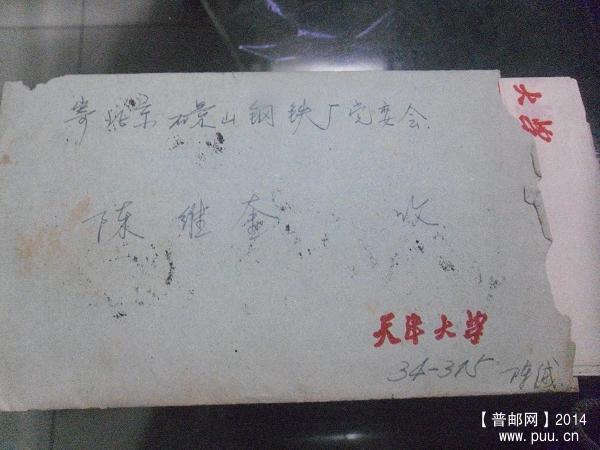 寄北京石景山钢铁厂党委会
大学
陈维奎 收
天津大学
34-315 陈诚
【普邮网】2014
www.puu.cn